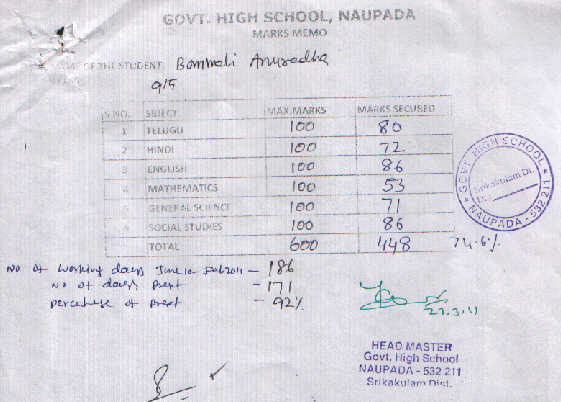 GOVT. HIGH SCHOOL, NAUPADA
MARKS MEMO
OF THE STUDENT: Bammali Anuradha
9/5
S.NO. SBJECY MAX.MARKS MARKS SECUSED
1 TELUGU 100 80
2 HINDI 100 72
3 ENGLISH 100 86
MATHEMATICS 100 53
GENERAL SCIENCE 100 71
SOCIAL STUDIES 100 86
TOTAL 600 448 74.6%
GOVT. HIGH SCHOOL
Srikakulam Dt.
NAUPADA - 532 211
No of working days June to 2011 - 186
No of days Prent - 171
percentage of Prent - 92%
23.3.11
HEAD MASTER
Govt. High School
NAUPADA - 532 211
Srikakulam Dist.